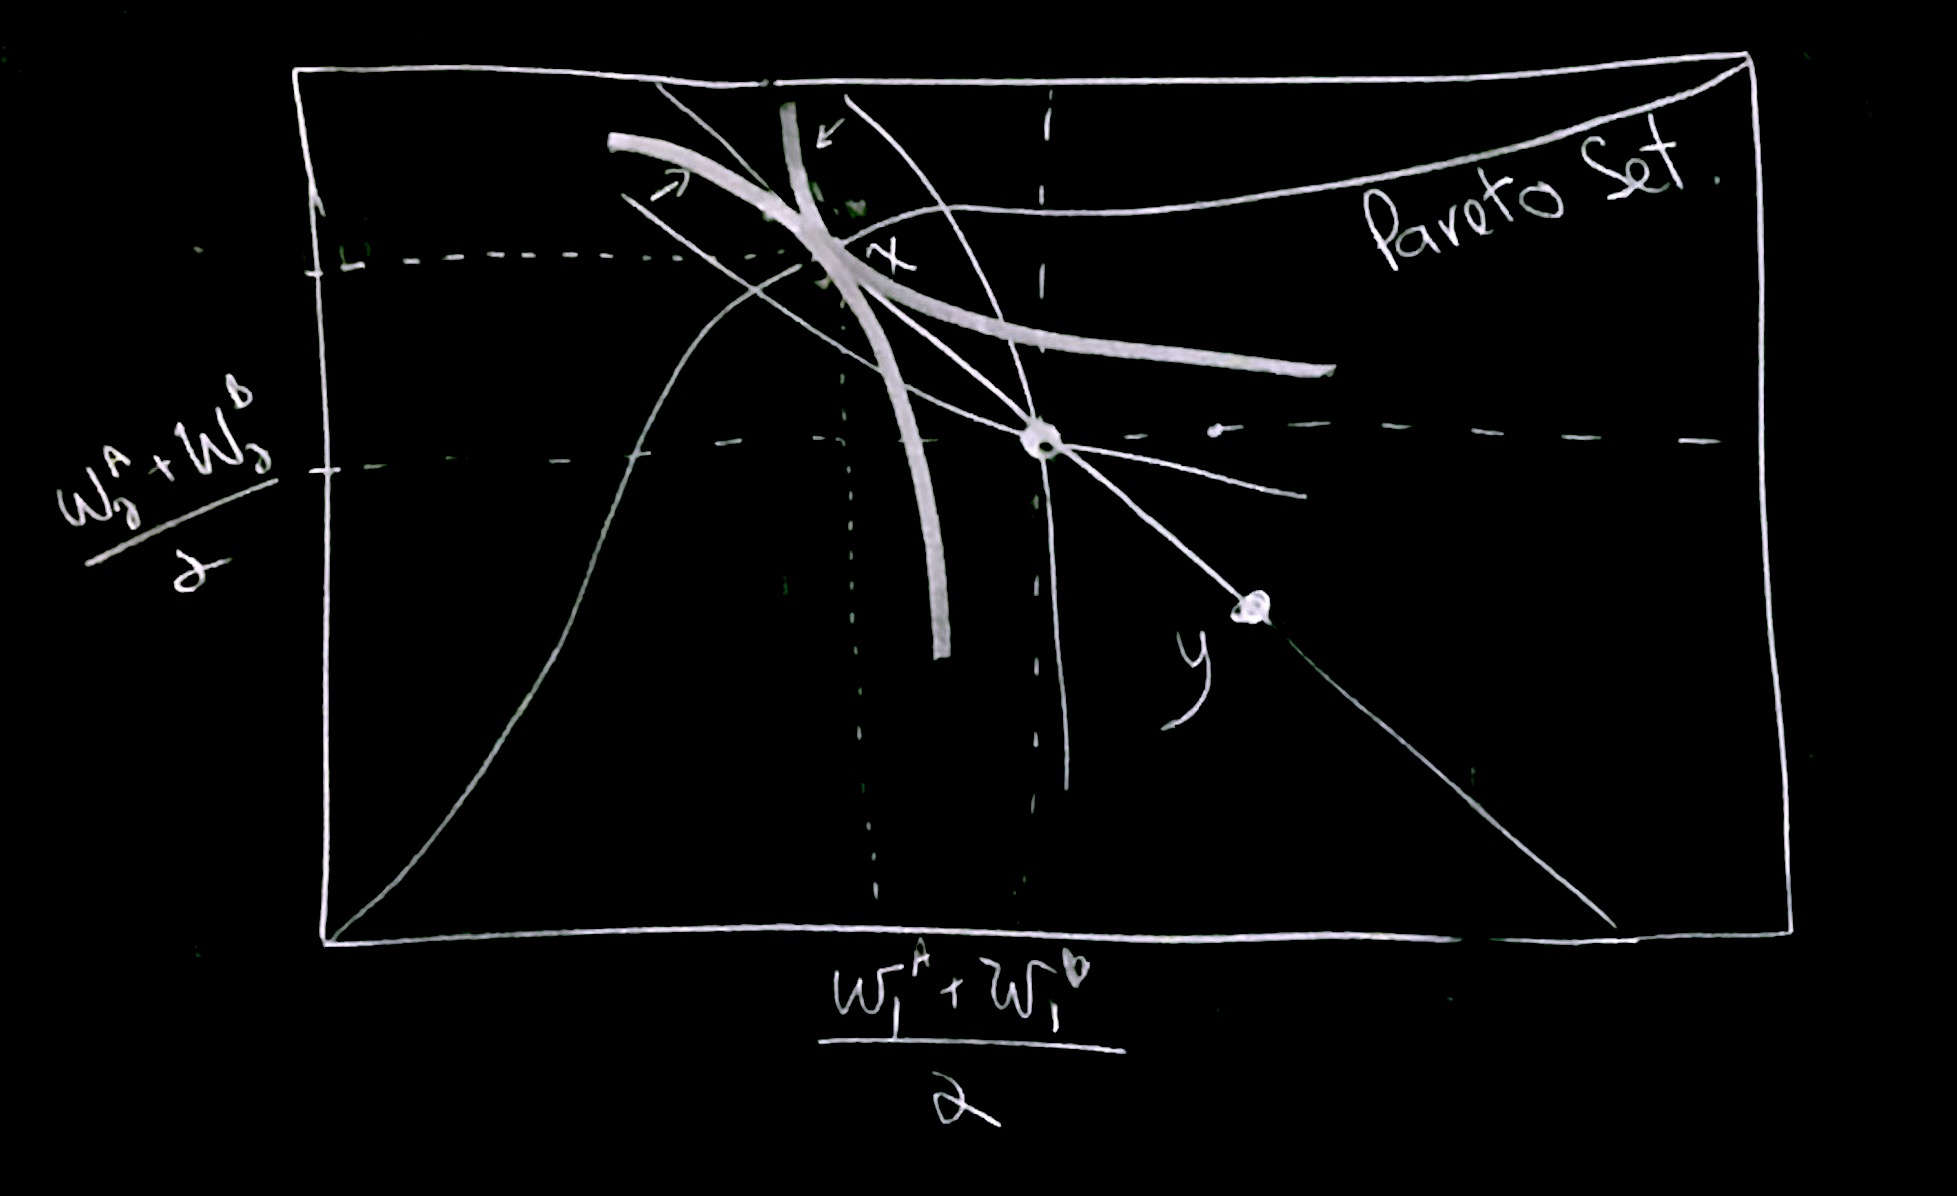 x
Pareto Set.
W₂ᴬ + W₂ᴮ
2
y
W₁ᴬ + W₁ᴮ
2